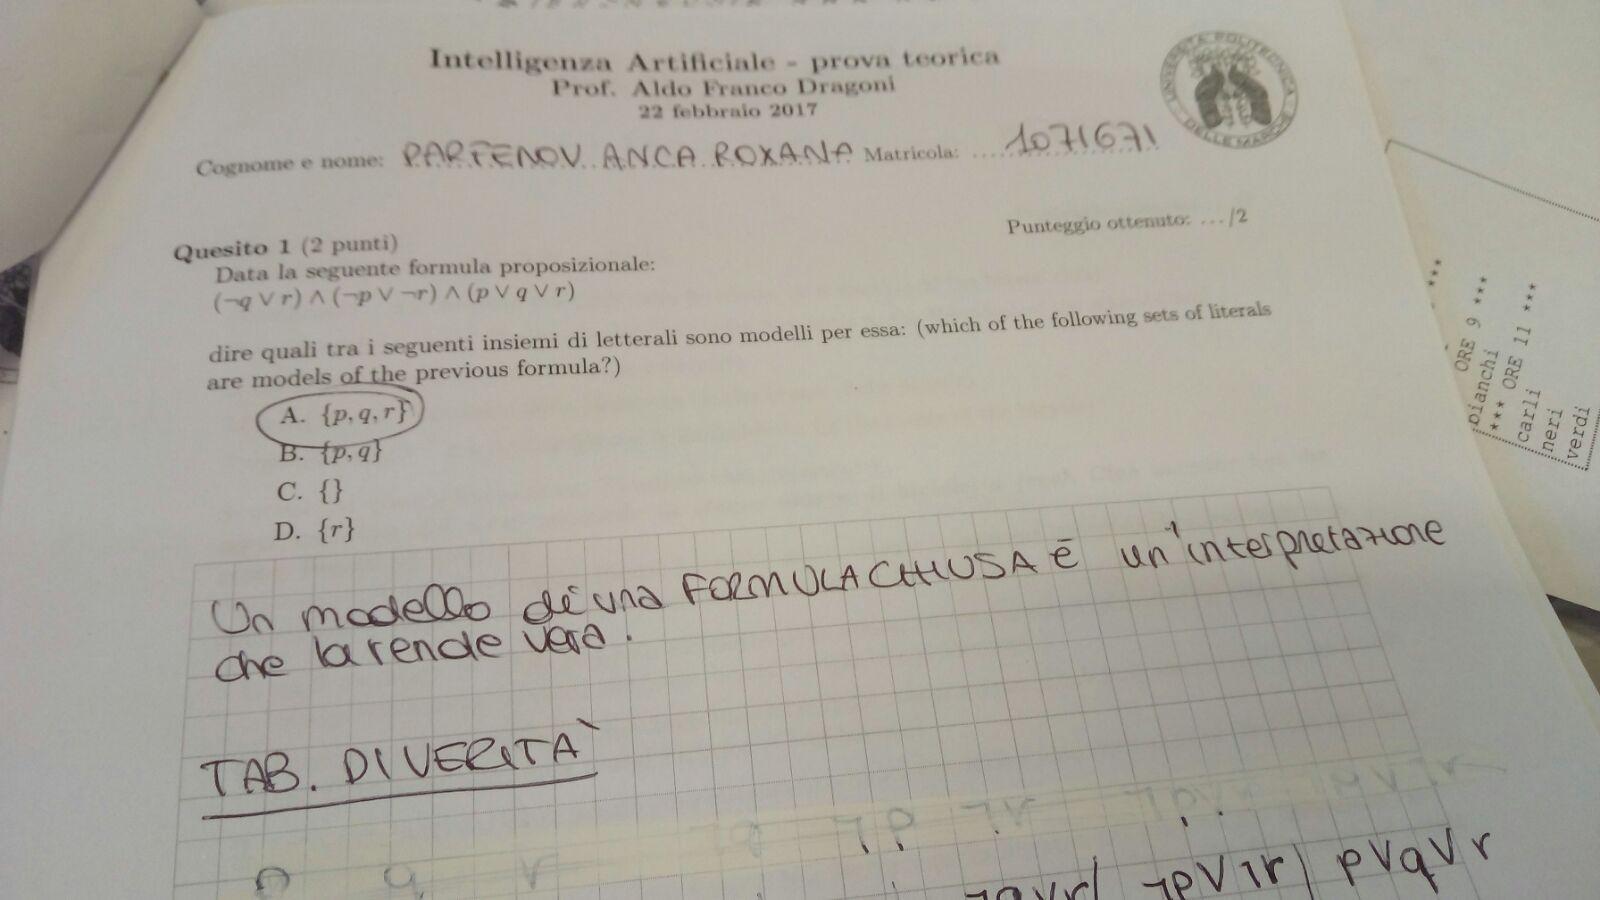 Intelligenza Artificiale - prova teorica
Prof. Aldo Franco Dragoni
22 febbraio 2017
UNIVERSITÀ POLITECNICA DELLE MARCHE
Cognome e nome: PARFENOV ANCA ROXANA Matricola: 1071671
Punteggio ottenuto: .../2
Quesito 1 (2 punti)
Data la seguente formula proposizionale:
(¬q ∨ r) ∧ (¬p ∨ ¬r) ∧ (p ∨ q ∨ r)
dire quali tra i seguenti insiemi di letterali sono modelli per essa: (which of the following sets of literals
are models of the previous formula?)
A. {p, q, r}
B. {p, q}
C. {}
D. {r}
Un modello di una FORMULA CHIUSA è un'interpretazione
che la rende vera.
TAB. DI VERITÀ
¬q∨r | ¬p∨¬r | p∨q∨r
***
ORE 9 ***
bianchi
*** ORE 11 ***
carli
neri
verdi